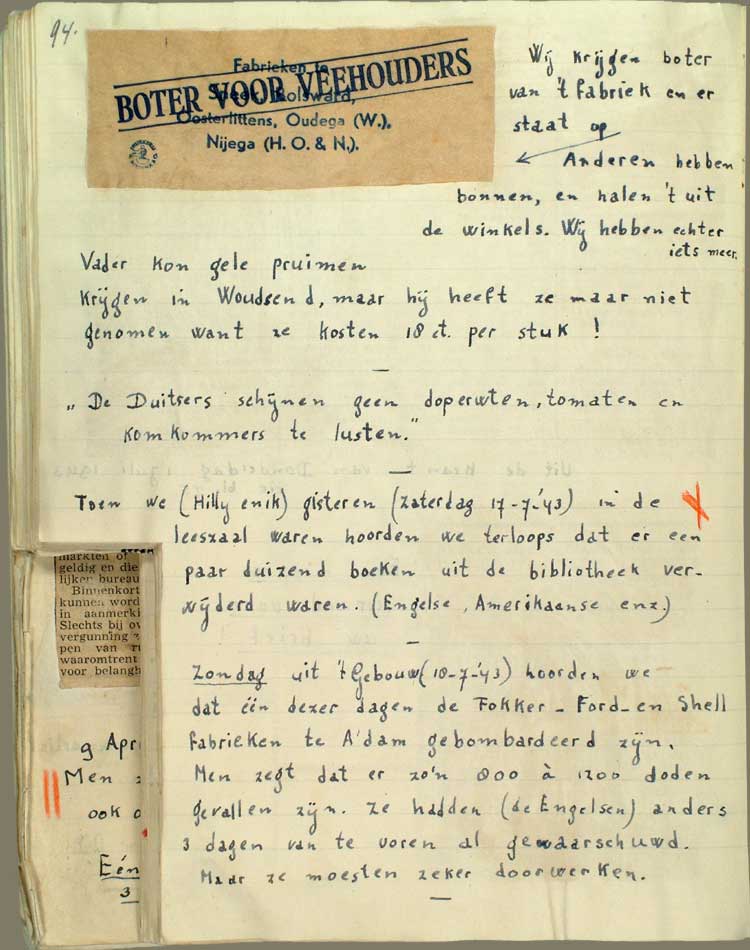 94.
Fabrieken te
BOTER VOOR VEEHOUDERS
Sneek, Bolsward,
Oosterlittens, Oudega (W.),
Nijega (H. O. & N.).
Wij krijgen boter
van 't fabriek en er
staat op
Anderen hebben
bonnen, en halen 't uit
de winkels. Wij hebben echter
iets meer.
Vader kon gele pruimen
krijgen in Woudsend, maar hij heeft ze maar niet
genomen want ze kosten 18 ct. per stuk !
—
„ De Duitsers schijnen geen doperwten, tomaten en
komkommers te lusten."
—
Toen we (Hilly enik) gisteren (Zaterdag 17-7-'43) in de
leeszaal waren hoorden we terloops dat er een
paar duizend boeken uit de bibliotheek ver-
wijderd waren. (Engelse, Amerikaanse enz.)
—
Zondag uit 't Gebouw (18-7-'43) hoorden we
dat één dezer dagen de Fokker- Ford- en Shell
fabrieken te A'dam gebombardeerd zijn.
Men zegt dat er zo'n 800 à 1200 doden
gevallen zijn. Ze hadden (de Engelsen) anders
3 dagen van te voren al gewaarschuwd.
Maar ze moesten zeker doorwerken.
—
markten of
geldig en die
lijker bureau
Binnenkort
kunnen word
in aanmerki
Slechts bij ov
vergunning
pen van
waaromtrent
voor belangh
9 Apr
Men
ook
Eén
3